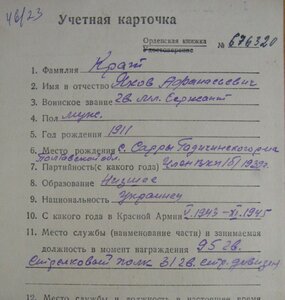 46/23
Учетная карточка
Орденская книжка
Удостоверение № 676320
1. Фамилия Кравт
2. Имя и отчество Яков Афанасьевич
3. Воинское звание гв. мл. сержант
4. Пол муж.
5. Год рождения 1911
6. Место рождения с. Сары Гадячинского р-на
Полтавской обл.
7. Партийность (с какого года) Член ВКП(б) 1939г.
8. Образование Низшее
9. Национальность Украинец
10. С какого года в Красной Армии V.1943-XI.1945
11. Место службы (наименование части) и занимаемая
должность в момент награждения 95 гв.
Стрелковый полк 31 гв. стр. дивизии
12. Место службы и должность в настоящее время